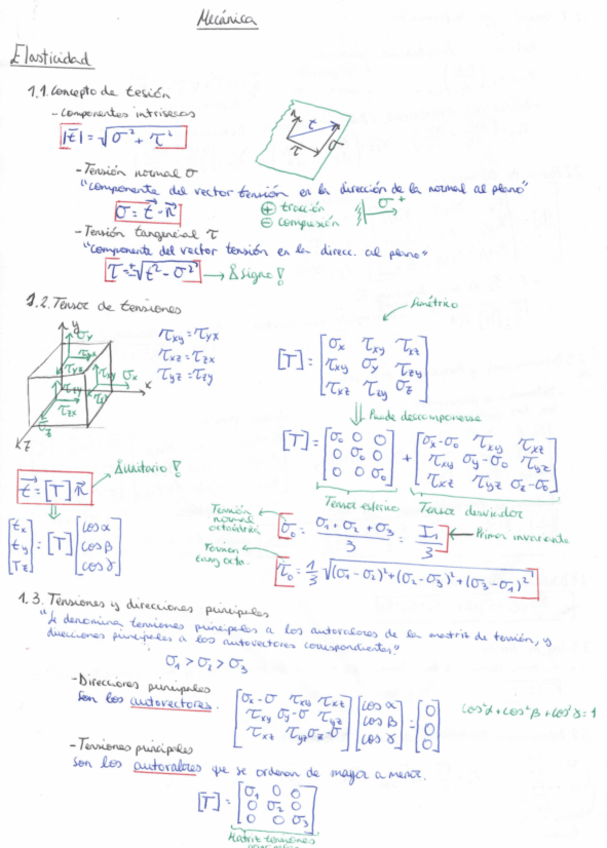 Mecánica
Elasticidad
1.1. Concepto de tesión
- Componentes intrisecos
|t⃗| = √σ² + τ²
t
τ
σ
- Tensión normal σ
"componente del vector tensión en la dirección de la normal al plano"
σ = t⃗ · n⃗
⊕ tracción
⊖ compresión
σ +
- Tensión tangencial τ
"componente del vector tensión en la direcc. al plano"
τ = ±√t² - σ² → ¡Signo!
1.2. Tensor de tensiones
Simétrico
y
σy
τyx
τyz
τxy
σx
x
τzy
τzx
σz
z
τxy = τyx
τxz = τzx
τyz = τzy
[T] = [σx τxy τxz
τxy σy τzy
τxz τzy σz]
⇓ Puede descomponerse
[T] = [σ0 0 0
0 σ0 0
0 0 σ0] + [σx-σ0 τxy τxz
τxy σy-σ0 τyz
τxz τyz σz-σ0]
Tensor esférico
Tensor desviador
t⃗ = [T] n⃗
¡unitario!
[tx
ty
Tz] = [T] [cos α
cos β
cos γ]
Tensión normal octaédrica
σ0 = σ1 + σ2 + σ3 / 3 = I1 / 3 ← Primer invariante
tang octa.
τ0 = 1/3 √(σ1-σ2)² + (σ2-σ3)² + (σ3-σ1)²
1.3. Tensiones y direcciones principales
"Se denomina tensiones principales a los autovalores de la matriz de tensión, y
direcciones principales a los autovectores correspondientes"
σ1 > σ2 > σ3
- Direcciones principales
Son los autovectores.
[σx-σ τxy τxz
τxy σy-σ τyz
τxz τyz σz-σ] [cos α
cos β
cos γ] = [0
0
0]
cos²α + cos²β + cos²γ = 1
- Tensiones principales
Son los autovalores que se ordenan de mayor a menor.
[T] = [σ1 0 0
0 σ2 0
0 0 σ3]
Matriz tensiones